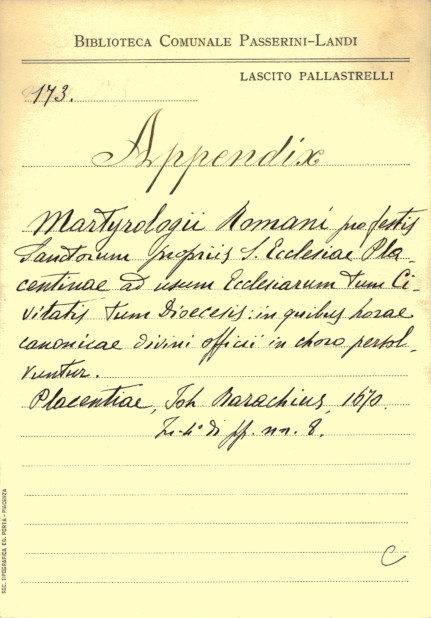 BIBLIOTECA COMUNALE PASSERINI-LANDI
LASCITO PALLASTRELLI
173.
Appendix
Martyrologii Romani pro festis
Sanctorum propriis S. Ecclesiae Pla
centinae ad usum Ecclesiarum tum Ci-
vitatis tum Dioecesis: in quibus horae
canonicae divini officii in choro persol-
vuntur.
Placentiae, Joh Barachius, 1670.
In-4° di pp. nn. 8.
C
SOC. TIPOGRAFICA ED. PORTA - PIACENZA